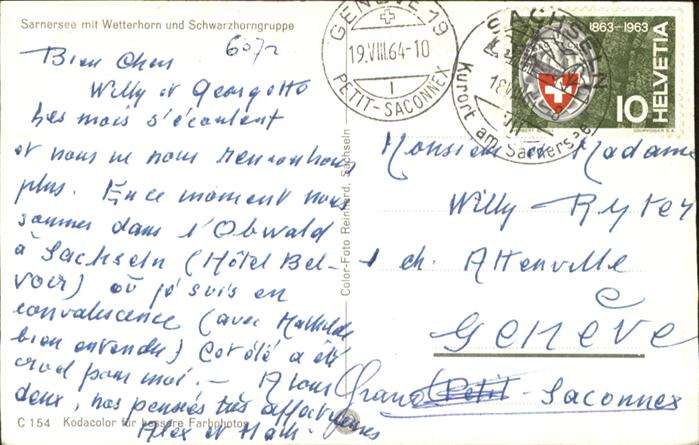 Sarnersee mit Wetterhorn und Schwarzhorngruppe
6072
Bien Chers
Willy et Georgette
Les mois s'écoulent
et nous ne nous rencontrons
plus. En ce moment nous
sommes dans l'Obwald
à Sachseln (Hôtel Bel-
voir) où je suis en
convalescence (avec Mathilde
bien entendu) Cet été a été
cruel pour moi. — A vous
deux, nos pensées très affectueuses
Alex et Math.
C 154 Kodacolor für bessere Farbphotos
Color-Foto Reinhard, Sachseln
GENÈVE 19
19.VIII.64-10
1
PETIT-SACONNEX
SACHSELN
Kurort am Sarnersee
1863-1963
HELVETIA
10
Monsieur et Madame
Willy Ryter
1 ch. Attenville
GENÈVE
Grand Petit - Saconnex